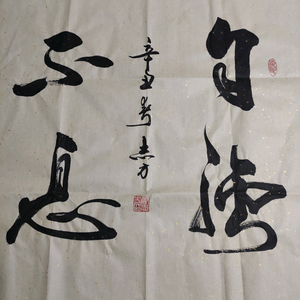 自强
不息
辛丑春志方